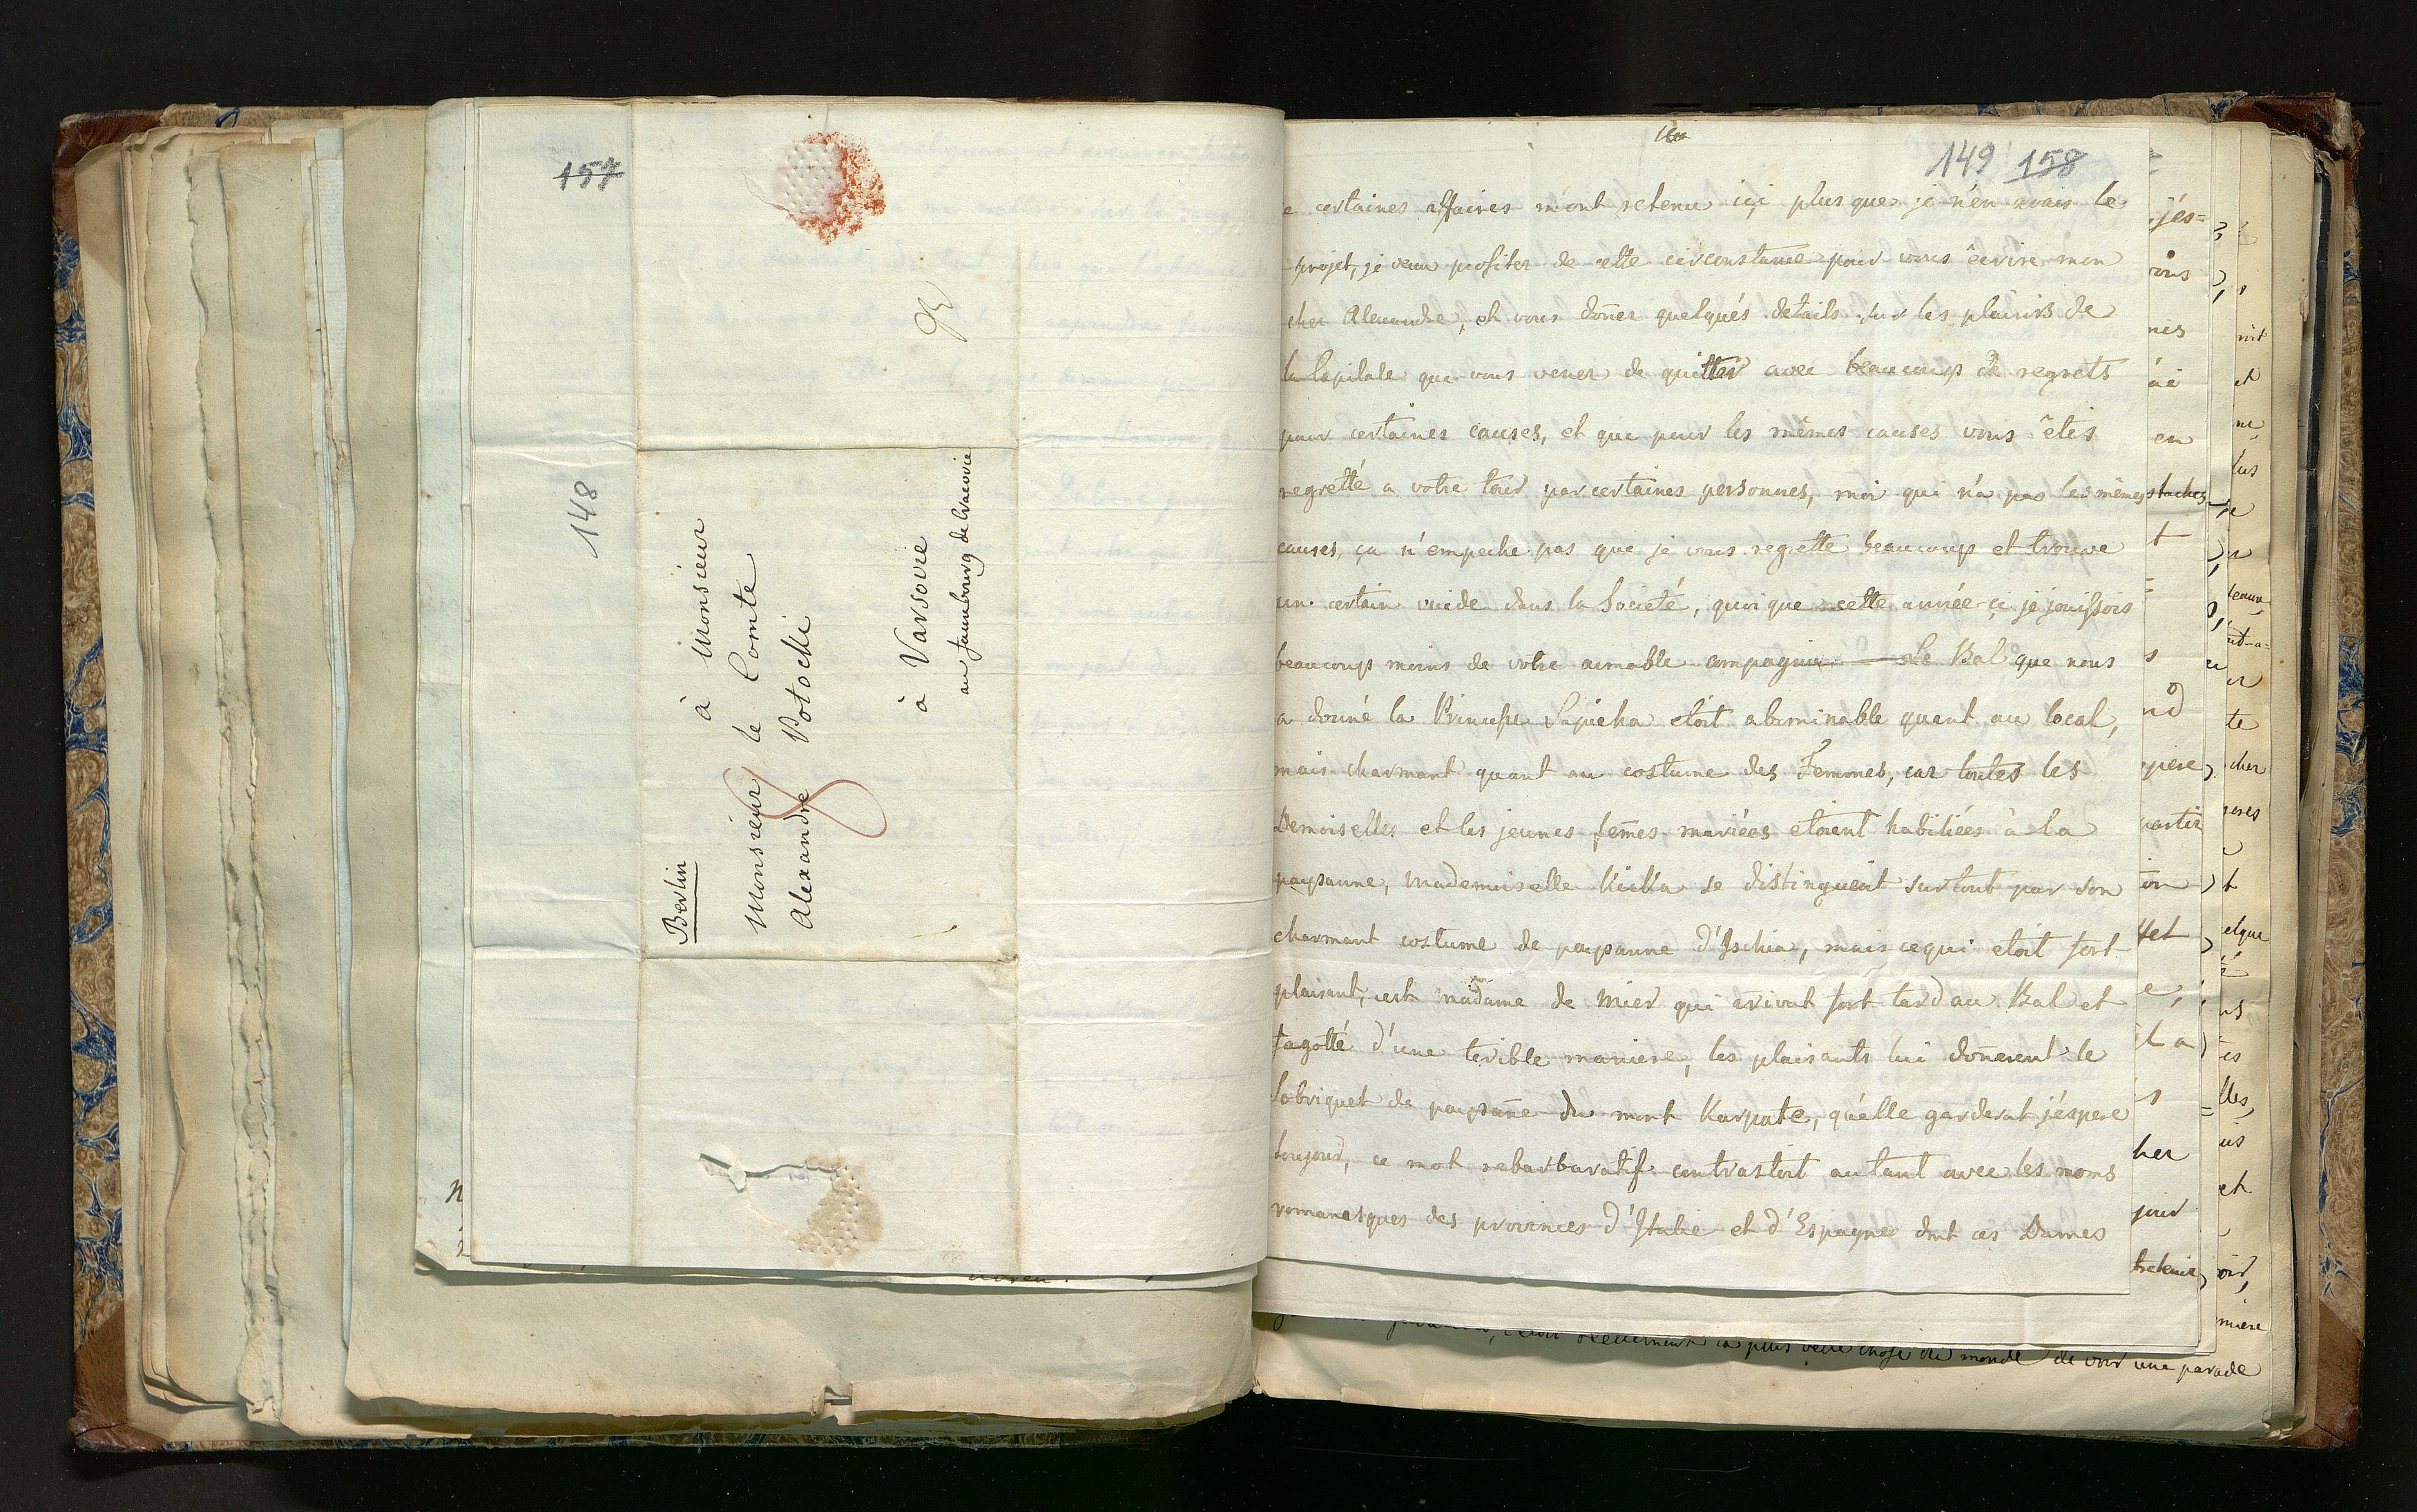 157
148
Berlin
à Monsieur
Monsieur le Comte
Alexandre Potocki
à Varsovie
au fauxbourg de Cracovie
149 158
certaines affaires m'ont retenu içi plus que je n'en avais le
projet, je veux profiter de cette circonstance pour vous écrire mon
cher Alexandre, et vous doner quelqués details sur les plaisirs de
la Capitale que vous venez de quitter avec beaucoup de regrets
pour certaines causes, et que pour les mêmes causes vous êtes
regretté a votre tour par certaines personnes, moi qui n'a pas les mêmes
causes, ça n'empeche pas que je vous regrette beaucoup et trouve
un certain vuide dans la Societé, quoique cette année çi je jouissois
beaucoup moins de votre aimable compagnie — Le Bal que nous
a donné la Princesse Sapieha etoit abominable quant au local,
mais charmant quant au costume des Femmes, car toutes les
Demoiselles et les jeunes fem̄es mariées etoient habiliées à la
paysanne, Mademoiselle Kicka se distinguoit surtout par son
charmant costume de paysanne d'Ischia, mais cequi etoit fort
plaisant, cest madame de Mier qui arivat fort tard au Bal et
fagotté d'une terible maniere, les plaisants lui don̄erent le
Sobriquet de paysan̄e du mont Karpate, qu'elle garderat j'éspere
toujour, ce mot rebarbaratif contrastoit autant avec les noms
romanesques des provinces d'Italie et d'Espagne dont ces Dames
jés=
vous
en
staches
t
s
nd
partir
e,
il a
s
her
jour
tretenir
et
cher
elque
lles,
et
voir,
la plus belle chose du monde de voir une parade